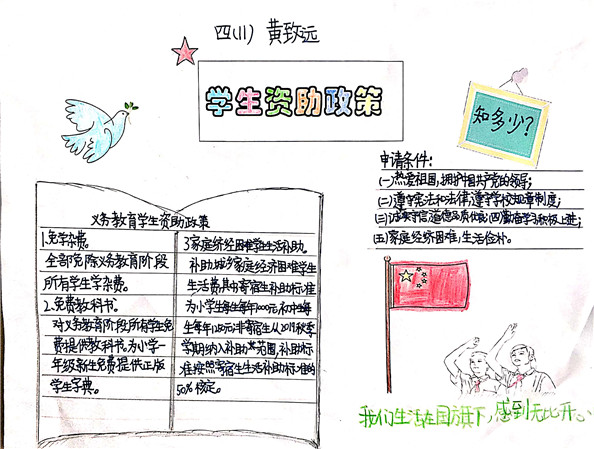 四(11) 黄致远
学生资助政策
知多少?
申请条件:
(一)热爱祖国,拥护中国共产党的领导;
(二)遵守宪法和法律,遵守学校规章制度;
(三)诚实守信,道德品质优良;(四)勤奋学习,积极上进;
(五)家庭经济困难,生活俭朴。
义务教育学生资助政策
1.免学杂费。
全部免除义务教育阶段
所有学生学杂费。
2.免费教科书。
对义务教育阶段所有学生免
费提供教科书。为小学一
年级新生免费提供正版
学生字典。
3.家庭经济困难学生生活补助。
补助城乡家庭经济困难学生
生活费,其中寄宿生补助标准
为小学生每生每年1000元,初中生每
生每年1250元;非寄宿生从2019秋季
学期纳入补助范围,补助标
准按照寄宿生生活补助标准的
50%核定。
我们生活在国旗下,感到无比开心